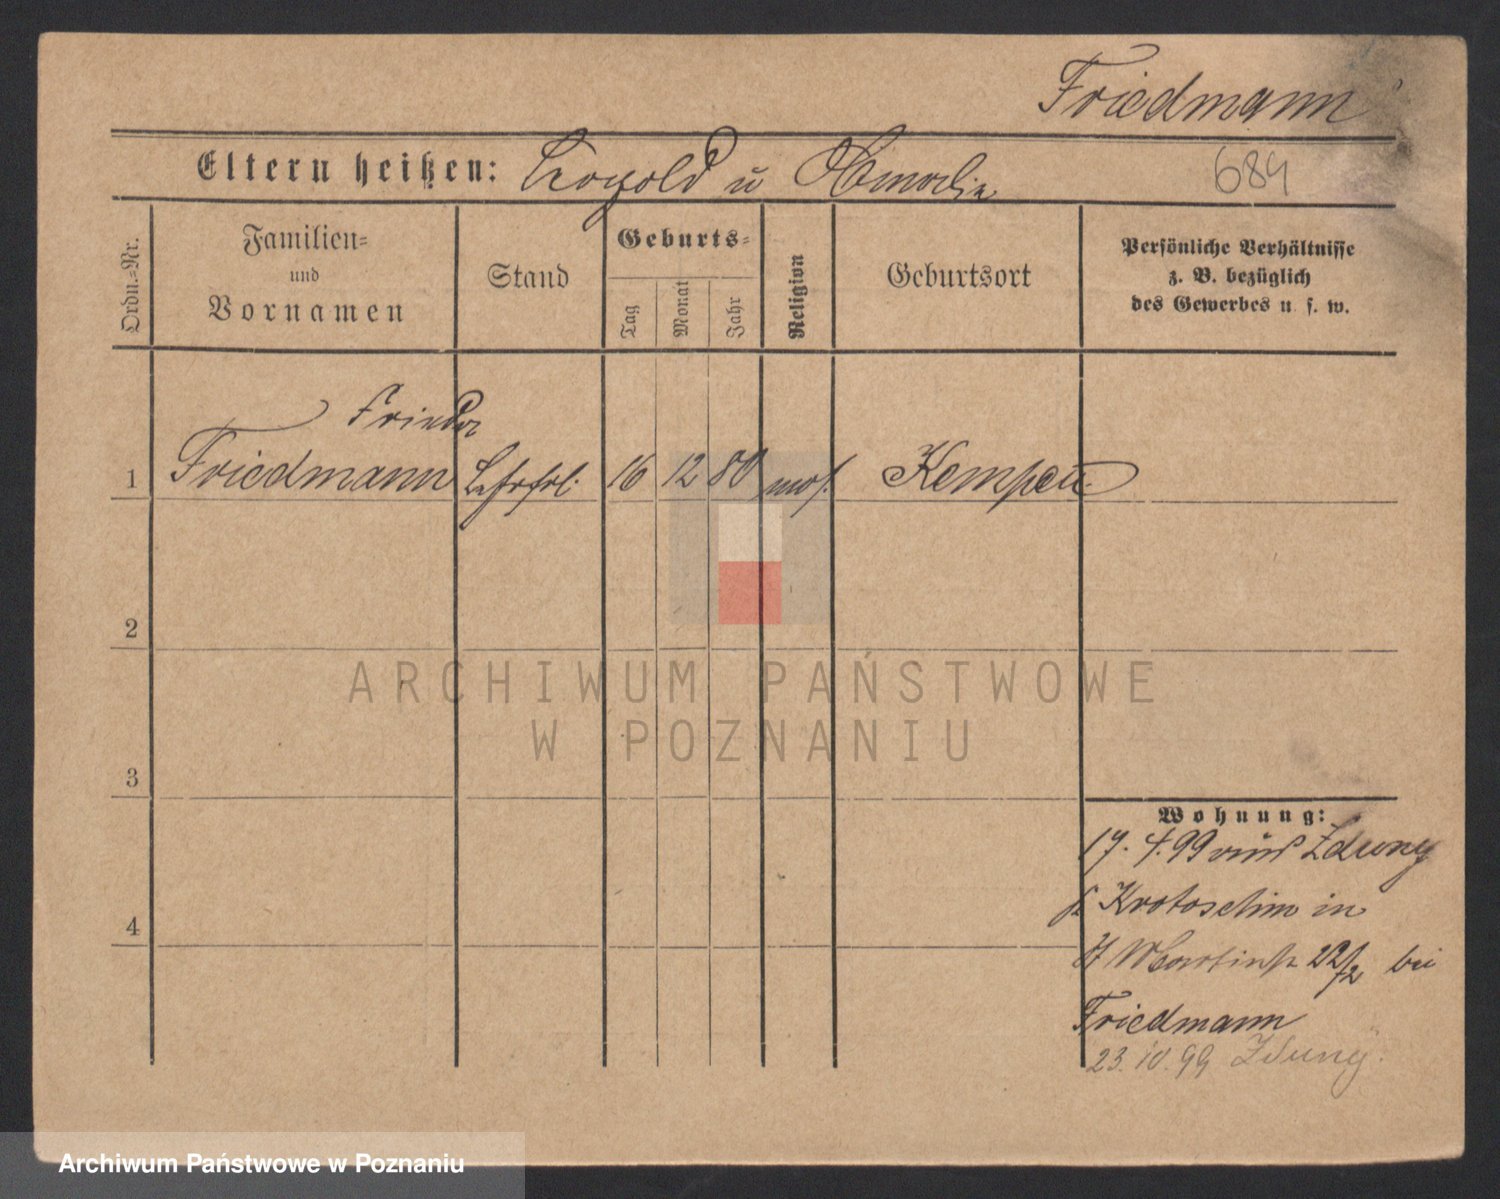 Friedmann
Eltern heißen: Leopold u
684
Ordn.=Nr.
Familien=
und
Vornamen
Stand
Geburts=
Tag
Monat
Jahr
Religion
Geburtsort
Persönliche Verhältnisse
z. B. bezüglich
des Gewerbes u. s. w.
1
Friedmann
16
12
80
mos.
Kempen
2
ARCHIWUM PAŃSTWOWE
W POZNANIU
3
Wohnung:
17. 4. 99 aus Zduny
Krotoschin in
St Martinstr 22/2 bei
Friedmann
23. 10. 99 Zduny.
4
Archiwum Państwowe w Poznaniu